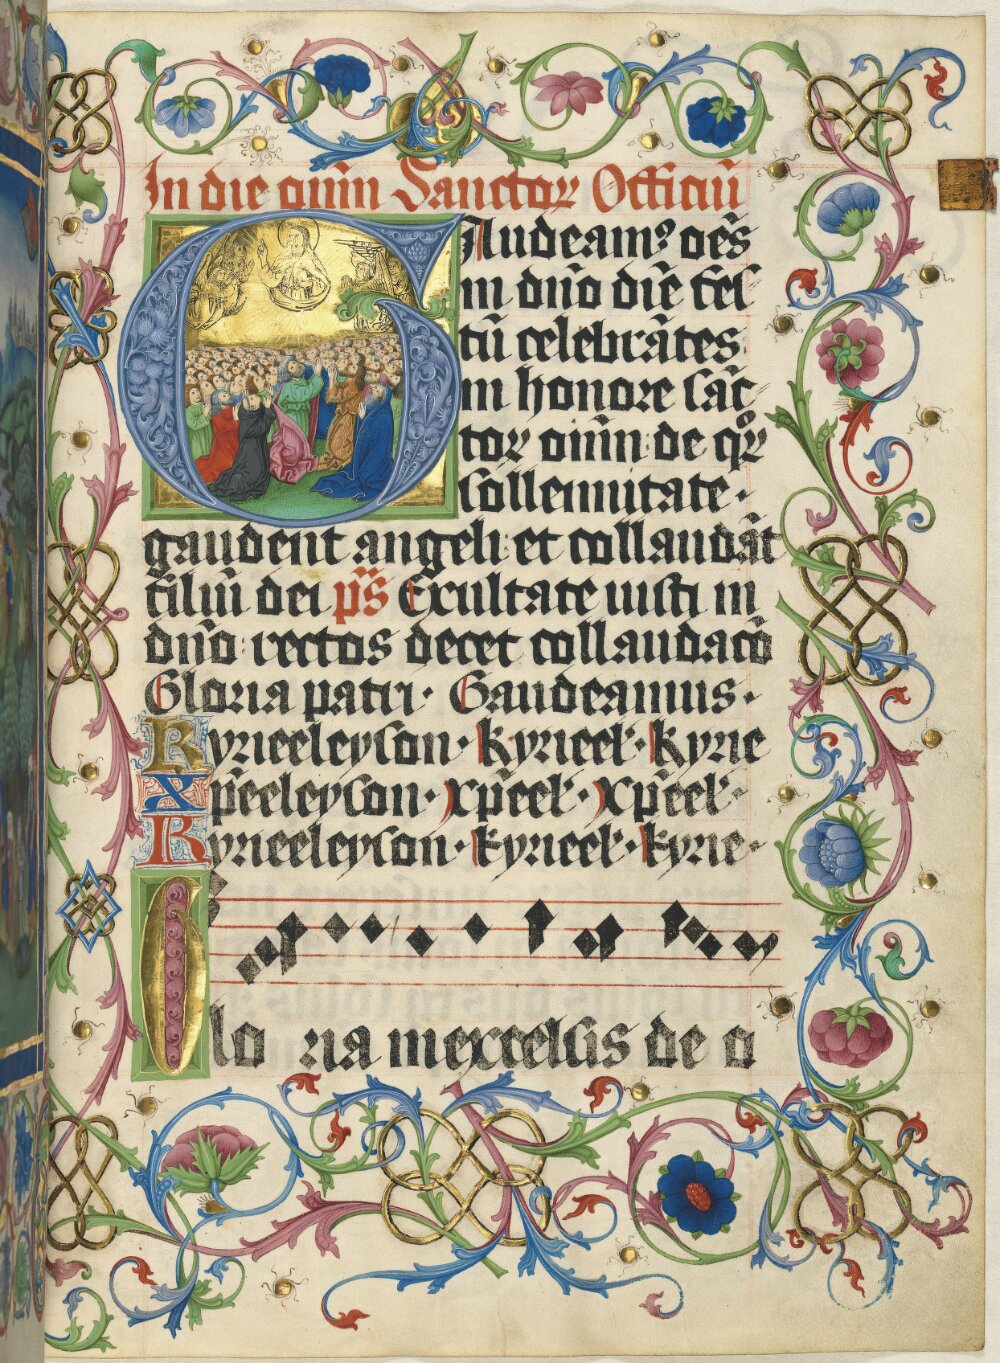 In die om̄m Sanctoꝝ Officiū
Gaudeamꝰ oēs
in dn̄o diē fes
tū celebrātes
in honore sāc
toꝝ om̄m de qꝝ
sollemnitate·
gaudent angeli et collaudāt
filiū dei p̄s Exultate iusti in
dn̄o rectos decet collaudac̄o
Gloria patri· Gaudeamus·
Kyrieeleyson· kyrieel'· kyrie
xp̄eeleyson· xp̄eel'· xp̄eel'
Kyrieeleyson· kyrieel'· kyrie·
Glo ria in excelsis de o